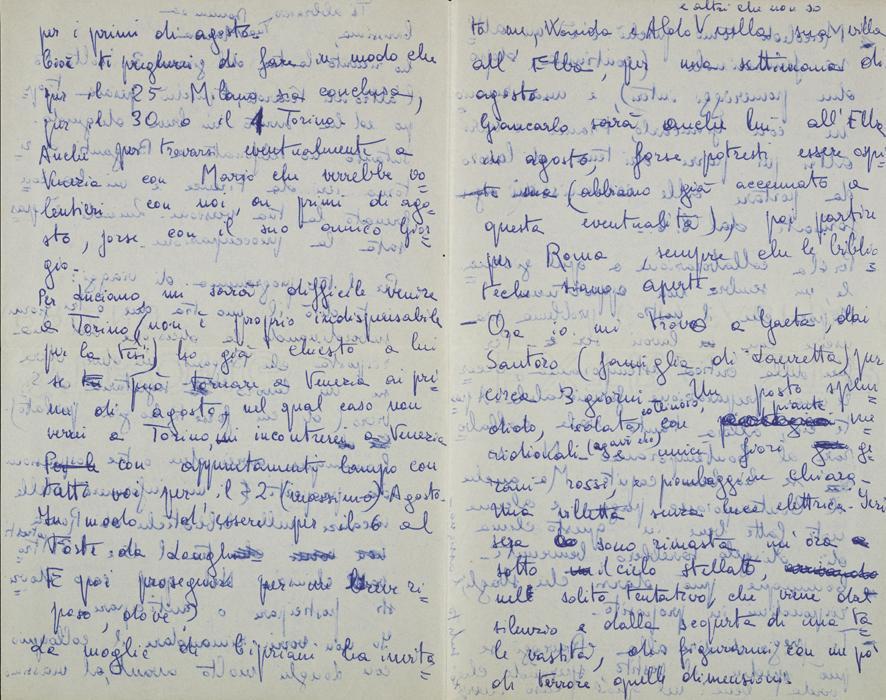 per i primi di agosto.
Cioè ti pregherei di fare in modo che
per il 25 Milano sia conclusa,
per 30 o il 1 Torino.
Anche per trovarsi eventualmente a
Venezia con Mario che verrebbe vo=
lentieri con noi, ai primi di ago=
sto, forse con il suo amico Gior=
gio.
Per Luciano mi sarà difficile venire
a Torino (non è proprio indispensabile
per la tesi) ho già chiesto a lui
se può tornare a Venezia ai pri=
mi di agosto, nel qual caso non
verrei a Torino, mi incontrerei a Venezia
con appuntamenti lampo con
tutti voi per il 2 (massimo) Agosto.
In modo di essere per il 5 o 6 al
Forte da
E poi proseguire per un breve ri=
poso, dove?
La moglie di Cipriani ha invita=
e altri che non so
to me, Wersida e Aldo Vissella, in una villa
all' Elba, per una settimana di
agosto.
Giancarlo sarà anche lui all'Elba
in agosto, forse potresti essere ospi=
(abbiamo già accennato a
questa eventualità), poi partire
per Roma sempre che le biblio=
teche siano aperte.
— Ora io mi trovo a Gaeta, dai
Santoro (famiglia di Lauretta) per
circa 3 giorni. Un posto splen=
dido, isolato, con piante me=
ridionali (agavi ecc) e unici fiori ge=
rani rossi, e piombaggine chiara.
Una villetta senza luce elettrica. Ieri
sera sono rimasta un'ora
sotto il cielo stellato,
nel solito tentativo, che viene dal
silenzio e dalla scoperta di una ta=
le vastità, di figurarmi con un po'
di terrore quelle dimensioni.